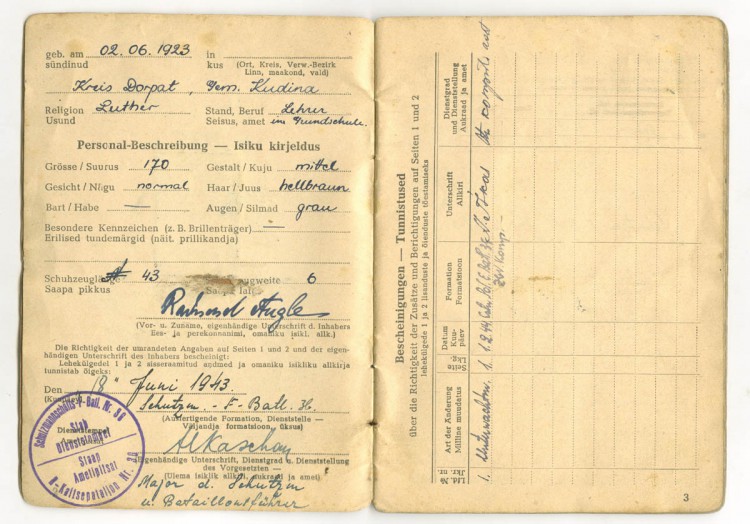 geb. am 02.06.1923 in
sündinud kus (Ort, Kreis, Verw.-Bezirk
Linn, maakond, vald)
Kreis Dorpat, Gem. Kudina
Religion Luther Stand, Beruf Lehrer
Usund Seisus, amet im Grundschule.
Personal-Beschreibung — Isiku kirjeldus
Grösse / Suurus 170 Gestalt / Kuju mittel
Gesicht / Nägu normal Haar / Juus hellbraun
Bart / Habe — Augen / Silmad grau
Besondere Kennzeichen (z. B. Brillenträger) —
Erilised tundemärgid (näit. prillikandja)
Schuhzeuglänge 43 weite 6
Saapa pikkus Saapa
(Vor- u. Zuname, eigenhändige Unterschrift d. Inhabers
Ees- ja perekonnanimi, omaniku isikl. allk.)
Die Richtigkeit der umrandeten Angaben auf Seiten 1 und 2 und der eigen-
händigen Unterschrift des Inhabers bescheinigt:
Lehekülgedel 1 ja 2 sisseraamitud andmed ja omaniku isikliku allkirja
tunnistab õigeks:
Den 18" Juni 1943.
Schutzm. - F - Batl. 36.
(Ausfertigende Formation, Dienststelle —
Väljaandja formatsioon, üksus)
Dienststempel
(Eigenhändige Unterschrift, Dienstgrad u. Dienststellung
des Vorgesetzten —
Ülema isiklik allkiri, aukraad ja amet)
Major d. Schutzm
u. Bataillonsführer
Schutzmannschafts-F-Batl. Nr.
Stab
Dienststempel
Staap
Ametipitsat
K-Kaitsepataljon Nr.
Bescheinigungen — Tunnistused
über die Richtigkeit der Zusätze und Berichtigungen auf Seiten 1 und 2
lehekülgede 1 ja 2 lisanduste ja õienduste tõestamiseks
Lfd. №
Jkr. nr.
Art der Änderung
Milline muudatus
Seite
Lkg.
Datum
Kuu-
päev
Formation
Formatsioon
Unterschrift
Allkiri
Dienstgrad
und Dienststellung
Aukraad ja amet
1. Unterwachtm. 1. 1.2.44
3